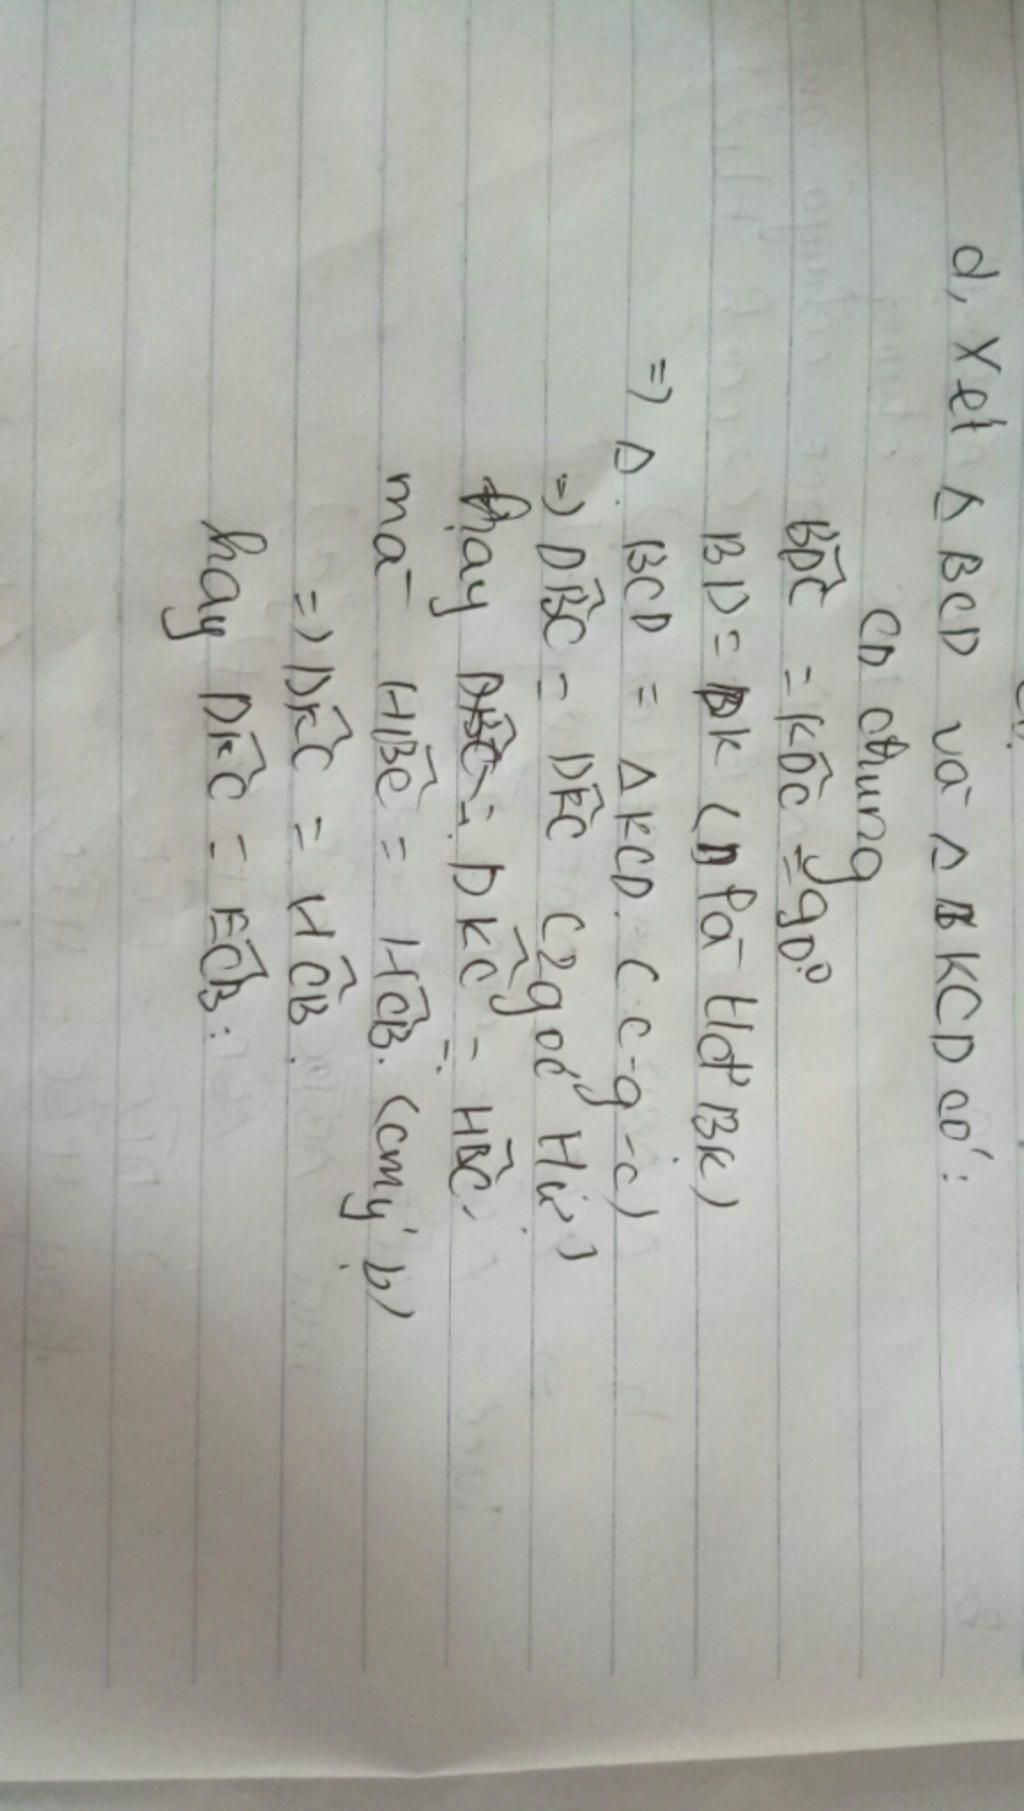 d, Xét Δ BCD và Δ KCD có:
CD chung
BDC = KDC = 90°
BD = DK (D là Hđ BK)
=> Δ BCD = Δ KCD. (c-g-c)
=> DBC = DKC (2 góc Hư)
hay DKC = HBC.
mà HBC = HCB. (cmý b)
=> DKC = HCB.
hay DKC = ECB.